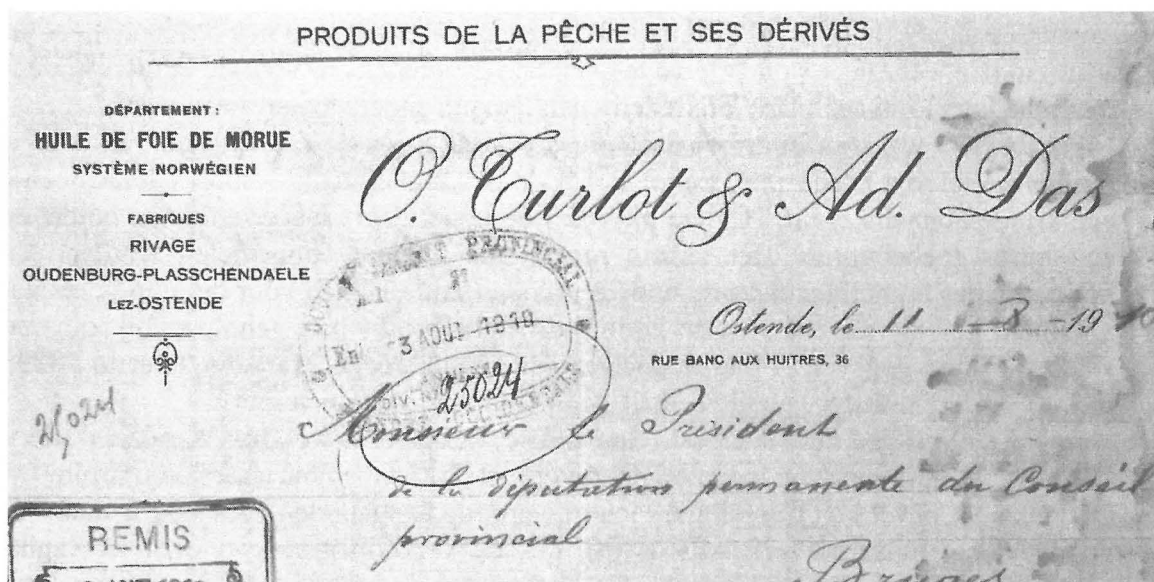 PRODUITS DE LA PÊCHE ET SES DÉRIVÉS
DÉPARTEMENT:
HUILE DE FOIE DE MORUE
SYSTÈME NORWÉGIEN
FABRIQUES
RIVAGE
OUDENBURG-PLASSCHENDAELE
LEZ-OSTENDE
O. Turlot & Ad. Das
PROVINCIAL
3 AOUT 1910
25024
Ostende, le 11 - 8 - 1910
RUE BANC AUX HUITRES, 36
25024
Monsieur le Président
de la députation permanente du Conseil
provincial
Bruges
REMIS